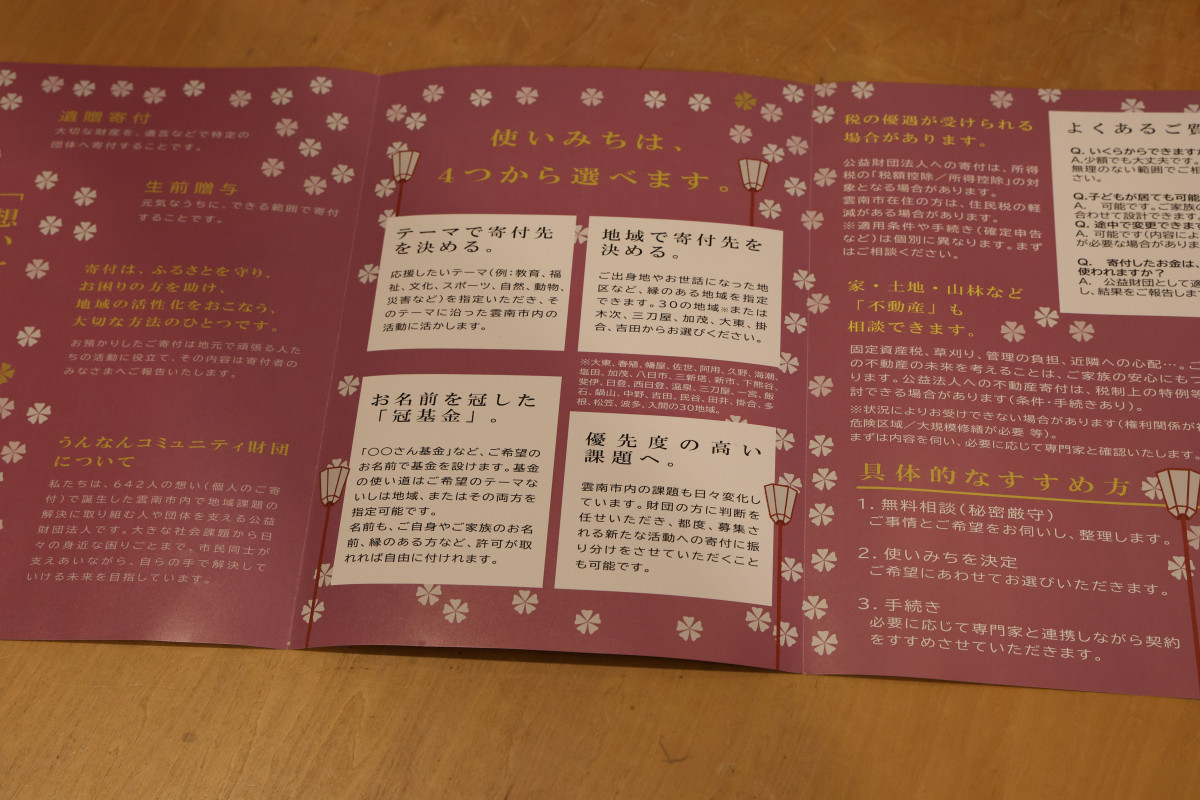 遺贈寄付
大切な財産を、遺言などで特定の
団体へ寄付することです。
生前贈与
元気なうちに、できる範囲で寄付
することです。
「想い
寄付は、ふるさとを守り、
お困りの方を助け、
地域の活性化をおこなう、
大切な方法のひとつです。
お預かりしたご寄付は地元で頑張る人た
ちの活動に役立て、その内容は寄付者の
みなさまへご報告いたします。
うんなんコミュニティ財団
について
私たちは、642人の想い(個人のご寄
付)で誕生した雲南市内で地域課題の
解決に取り組む人や団体を支える公益
財団法人です。大きな社会課題から日
々の身近な困りごとまで、市民同士が
支えあいながら、自らの手で解決して
いける未来を目指しています。
使いみちは、
4つから選べます。
テーマで寄付先
を決める。
応援したいテーマ(例:教育、福
祉、文化、スポーツ、自然、動物、
災害など)を指定いただき、そ
のテーマに沿った雲南市内の
活動に活かします。
地域で寄付先を
決める。
ご出身地やお世話になった地
区など、縁のある地域を指定
できます。30の地域※または
木次、三刀屋、加茂、大東、掛
合、吉田からお選びください。
※大東、春殖、幡屋、佐世、阿用、久野、海潮、
塩田、加茂、八日市、三新塔、新市、下熊谷、
斐伊、日登、西日登、温泉、三刀屋、一宮、飯
石、鍋山、中野、吉田、民谷、田井、掛合、多
根、松笠、波多、入間の30地域。
お名前を冠した
「冠基金」。
「〇〇さん基金」など、ご希望の
お名前で基金を設けます。基金
の使い道はご希望のテーマな
いしは地域、またはその両方を
指定可能です。
名前も、ご自身やご家族のお名
前、縁のある方など、許可が取
れれば自由に付けれます。
優先度の高い
課題へ。
雲南市内の課題も日々変化し
ています。財団の方に判断を
任せいただき、都度、募集さ
れる新たな活動への寄付に振
り分けをさせていただくこと
も可能です。
税の優遇が受けられる
場合があります。
公益財団法人への寄付は、所得
税の「税額控除/所得控除」の対
象となる場合があります。
雲南市在住の方は、住民税の軽
減がある場合があります。
※適用条件や手続き(確定申告
など)は個別に異なります。まず
はご相談ください。
家・土地・山林など
「不動産」も
相談できます。
固定資産税、草刈り、管理の負担、近隣への心配…。こ
の不動産の未来を考えることは、ご家族の安心にもつ
ります。公益法人への不動産寄付は、税制上の特例等
討できる場合があります(条件・手続きあり)。
※状況によりお受けできない場合があります(権利関係が複
危険区域/大規模修繕が必要 等)。
まずは内容を伺い、必要に応じて専門家と確認いたします。
具体的なすすめ方
1. 無料相談(秘密厳守)
ご事情とご希望をお伺いし、整理します。
2. 使いみちを決定
ご希望にあわせてお選びいただきます。
3. 手続き
必要に応じて専門家と連携しながら契約
をすすめさせていただきます。
よくあるご質
Q. いくらからできますか
A.少額でも大丈夫です。
無理のない範囲でご相
さい。
Q.子どもが居ても可能
A. 可能です。ご家族の
合わせて設計できます
Q. 途中で変更できます
A. 可能です(内容によ
が必要な場合がありま
Q. 寄付したお金は、
使われますか?
A. 公益財団として適
し、結果をご報告しま